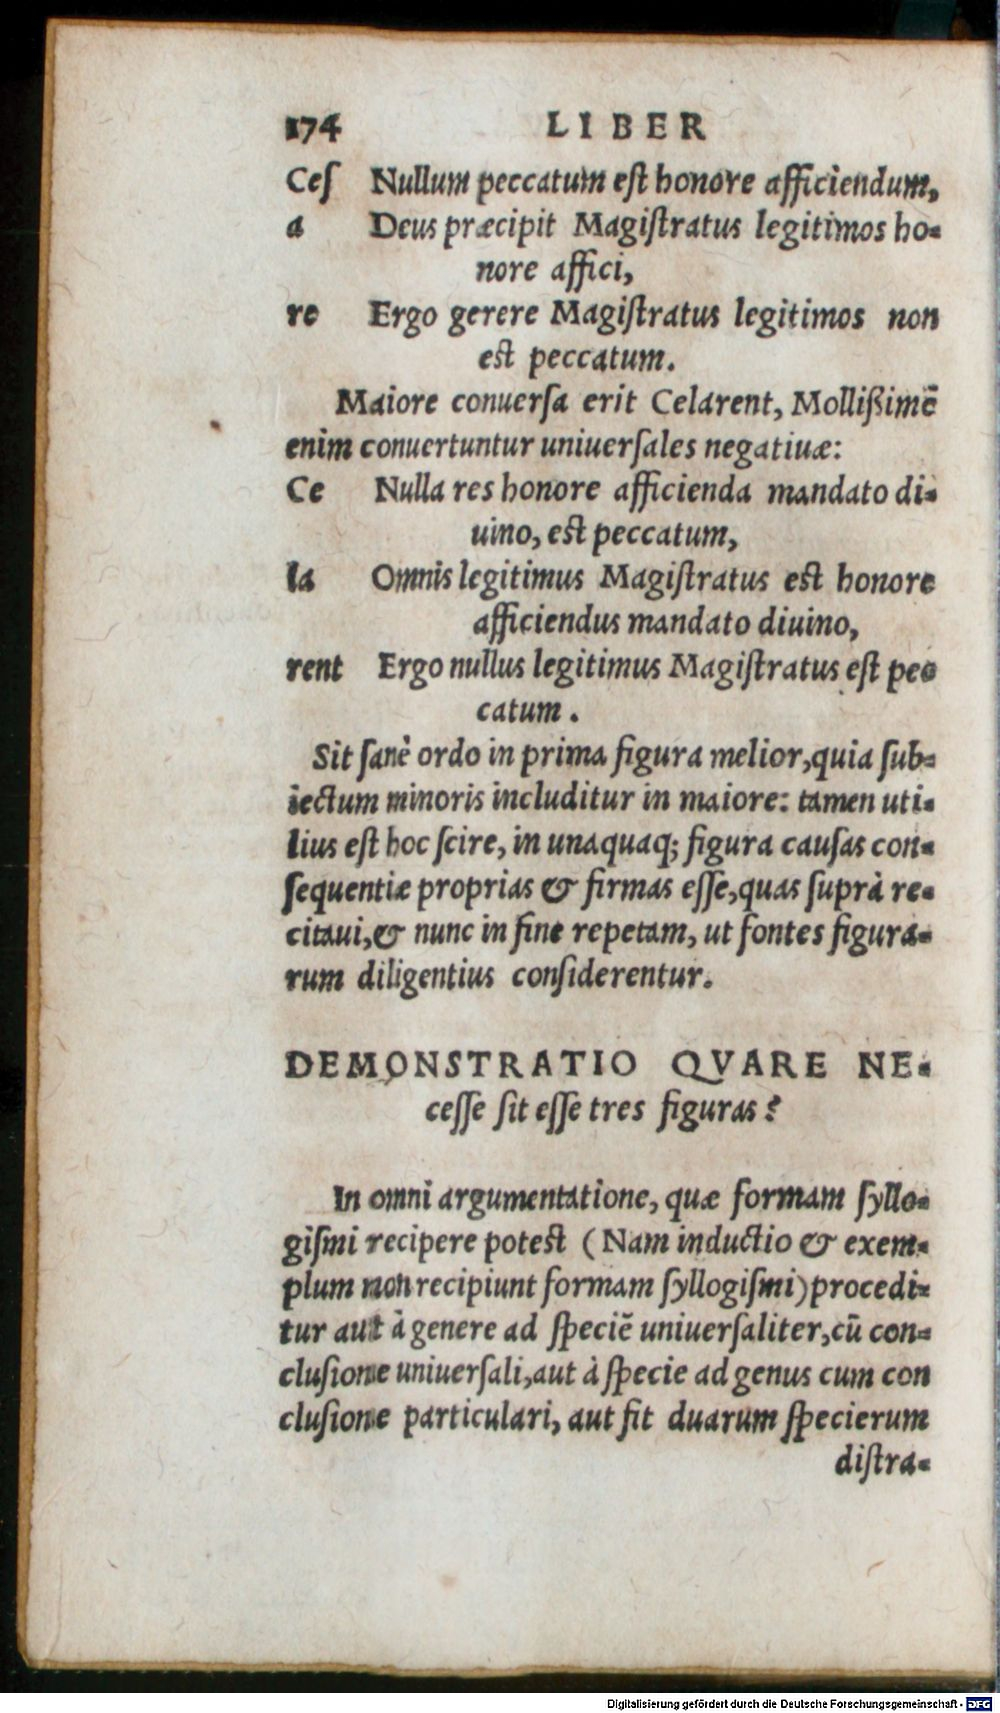 174 LIBER
Ceſ Nullum peccatum eſt honore afficiendum,
a Deus præcipit Magiſtratus legitimos ho-
nore affici,
re Ergo gerere Magiſtratus legitimos non
eſt peccatum.
Maiore conuerſa erit Celarent, Molliſsimē
enim conuertuntur uniuerſales negatiuæ:
Ce Nulla res honore afficienda mandato di-
uino, eſt peccatum,
la Omnis legitimus Magiſtratus eſt honore
afficiendus mandato diuino,
rent Ergo nullus legitimus Magiſtratus eſt pec
catum.
Sit ſanè ordo in prima figura melior, quia ſub-
iectum minoris includitur in maiore: tamen uti-
lius eſt hoc ſcire, in unaquaq; figura cauſas con-
ſequentiæ proprias & firmas eſſe, quas ſuprà re-
citaui, & nunc in fine repetam, ut fontes figura-
rum diligentius conſiderentur.
DEMONSTRATIO QVARE NE-
ceſſe ſit eſſe tres figuras?
In omni argumentatione, quæ formam ſyllo-
giſmi recipere poteſt (Nam inductio & exem-
plum non recipiunt formam ſyllogiſmi) procedi-
tur aut à genere ad ſpeciē uniuerſaliter, cū con-
cluſione uniuerſali, aut à ſpecie ad genus cum con
cluſione particulari, aut fit duarum ſpecierum
diſtra-
Digitalisierung gefördert durch die Deutsche Forschungsgemeinschaft - DFG